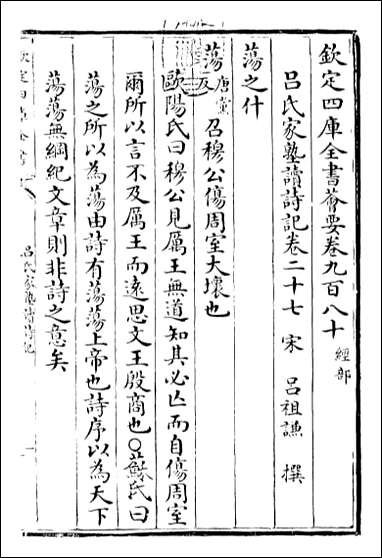 欽定四庫全書薈要卷九百八十 經部
呂氏家塾讀詩記卷二十七 宋 呂祖謙 撰
蕩之什
蕩唐黨反召穆公傷周室大壞也
歐陽氏曰穆公見厲王無道知其必亡而自傷周室
爾所以言不及厲王而遠思文王殷商也○蘇氏曰
蕩之所以為蕩由詩有蕩蕩上帝也詩序以為天下
蕩蕩無綱紀文章則非詩之意矣
欽定四庫全書
呂氏家塾讀詩記
一